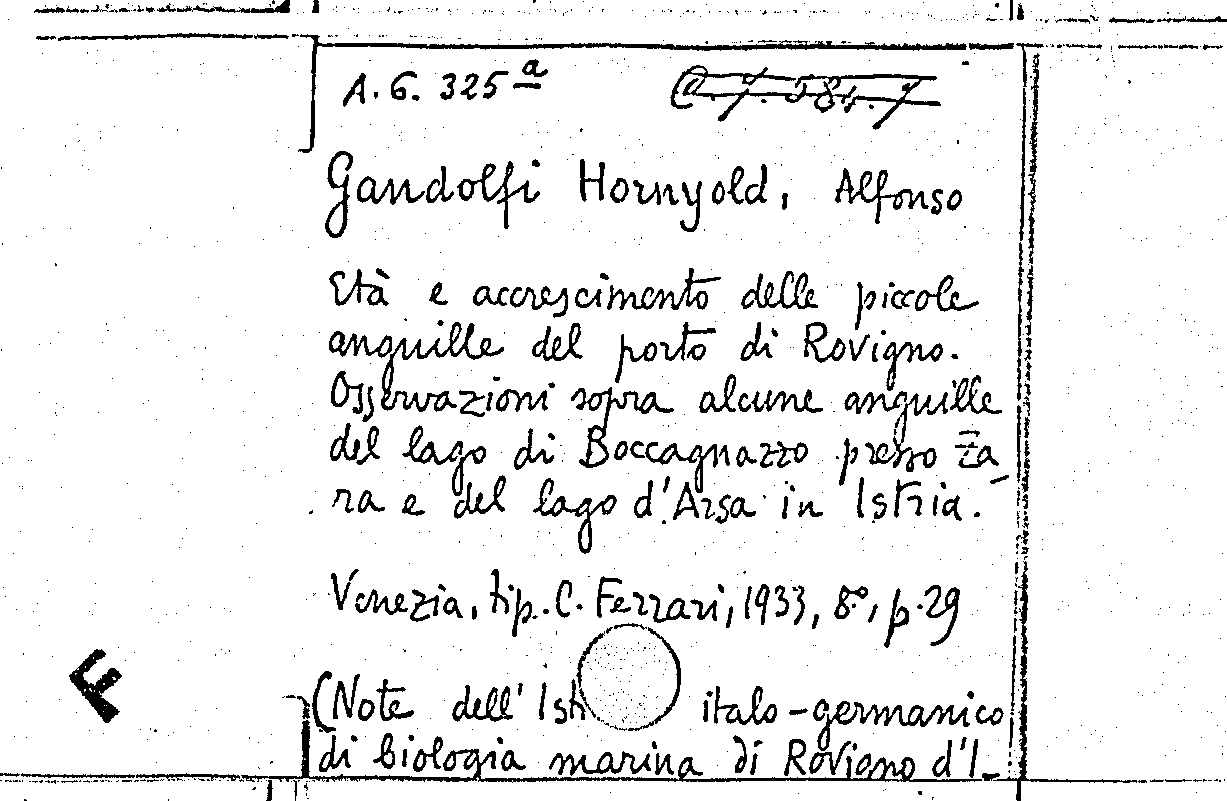 A. G. 325ª
@. 7. 584. 7
Gandolfi Hornyold, Alfonso
Età e accrescimento delle piccole
anguille del porto di Rovigno.
Osservazioni sopra alcune anguille
del lago di Boccagnazzo presso Za
ra e del lago d'Arsa in Istria.
Venezia, tip. C. Ferrari, 1933, 8°, p. 29
(Note dell' Ist italo-germanico
di biologia marina di Rovigno d'I-
F